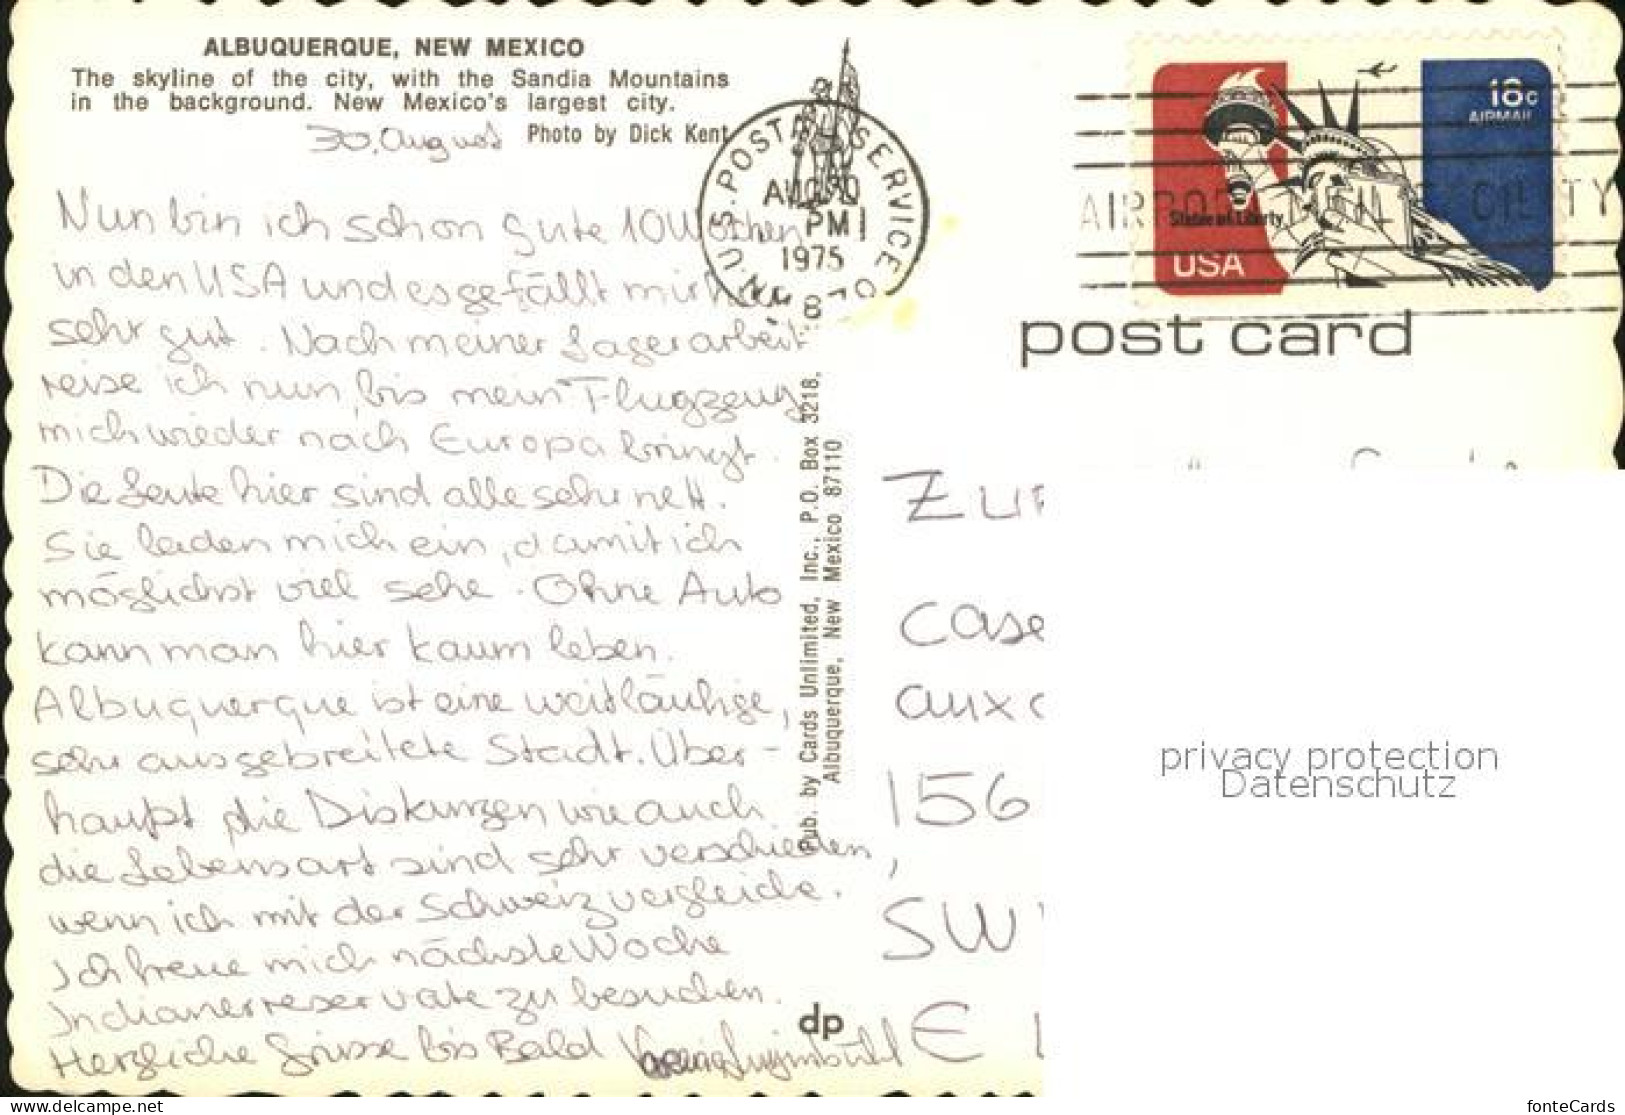 ALBUQUERQUE, NEW MEXICO
The skyline of the city, with the Sandia Mountains
in the background. New Mexico's largest city.
Photo by Dick Kent
30. August
Nun bin ich schon gute 10 Wochen
in den USA und es gefällt mir
sehr gut. Nach meiner Lagerarbeit
reise ich nun, bis mein Flugzeug
mich wieder nach Europa bringt.
Die Leute hier sind alle sehr nett.
Sie laden mich ein, damit ich
möglichst viel sehe. Ohne Auto
kann man hier kaum leben.
Albuquerque ist eine weitläufige,
sehr ausgebreitete Stadt. Über-
haupt die Diskunzen wie auch
die Lebensart sind sehr verschieden,
wenn ich mit der Schweiz vergleiche.
Ich freue mich nächste Woche
Indianerreservate zu besuchen.
Herzliche Grüsse bis Bald
U.S. POSTAL SERVICE
AUG 30
PM
1975
Pub. by Cards Unlimited, Inc., P.O. Box 3218,
Albuquerque, New Mexico 87110
dp
18c
AIRMAIL
Statue of Liberty
USA
AIRPORT MAIL FACILITY
post card
ZUR
case
aux
156
SW
E
privacy protection
Datenschutz
delcampe.net
fonteCards